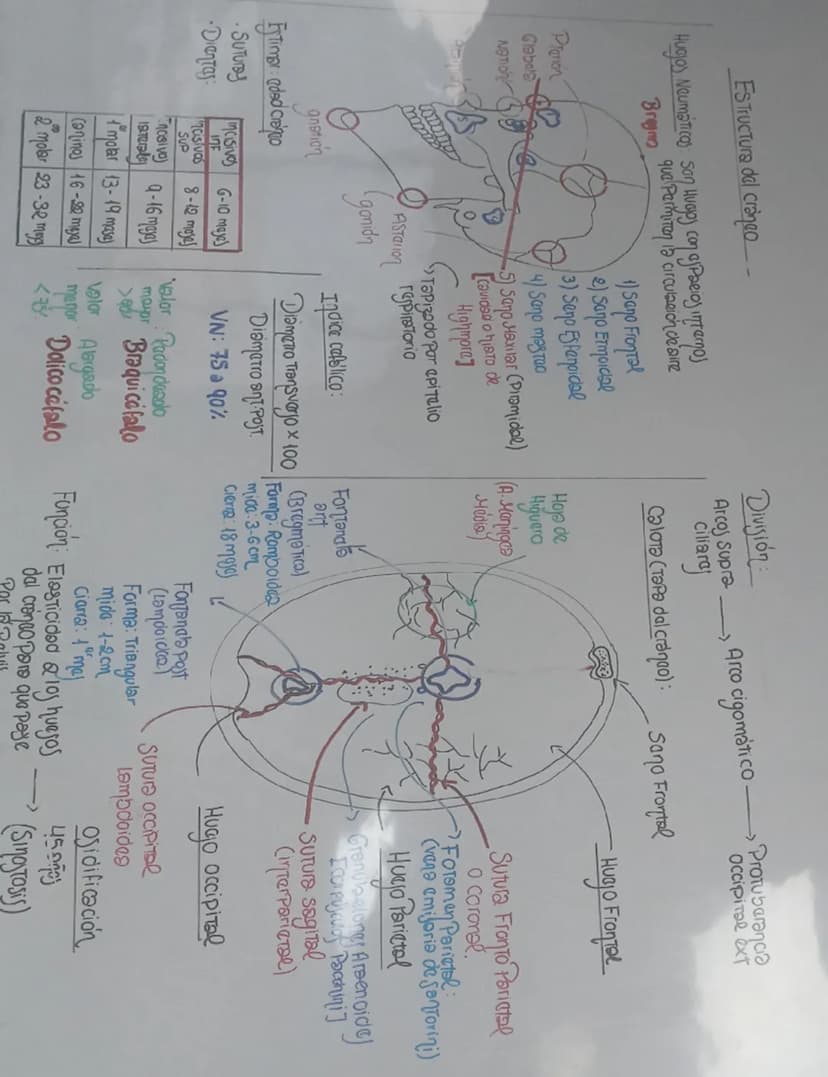 Estructura del cráneo
Huesos Neumáticos: Son Huesos con espacios internos
que permiten la circulación de aire
Bregma
Pterión
Glabela
Nasión
1) Seno Frontal
2) Seno Etmoidal
3) Seno Esfenoidal
4) Seno mastoideo
5) Seno Maxilar (Piramidal)
[cavidad o antro de
Highmore]
Tapizado por epitelio
respiratorio
Asterion
gonión
gnatión
Estimar: edad craneo
· Suturas
· Dientes:
incisivos inf 6-10 meses
incisivos sup 8-12 meses
incisivos laterales 9-16 meses
1er molar 13-19 meses
caninos 16-22 meses
2do molar 23-32 meses
Indice cefálico:
Diametro Transverso x 100
Diametro ant-post.
VN: 75 a 90%
Valor mayor > 80% Redondeado
Braquicéfalo
Valor menor < 75% Alargado
Dolicocéfalo
División:
Arcos supra ciliares → Arco cigomático → Protuberancia occipital ext
Calota (tapa del cráneo):
Seno Frontal
Hueso Frontal
Hoja de
Higuera
(A. Meningea
Media)
Fontanela
ant
(Bregmática)
Forma: Romboidea
mide: 3-6 cm
cierra: 18 meses
Sutura Fronto Parietal
o Coronal.
Foramen Parietal:
(vena emisaria de Santorini)
Hueso Parietal
Granulaciones Aracnoides
Pacchini]
Sutura sagital
(interparietal)
Fontanela Post
(Lambdoidea)
Forma: Triangular
mide: 1-2 cm
cierra: 1er mes
Hueso occipital
Sutura occipital
Lambdoidea
Función: Elasticidad a los huesos
del craneo para que pase
Por la Pelvis
Osificación
45 años
(Sinostosis)